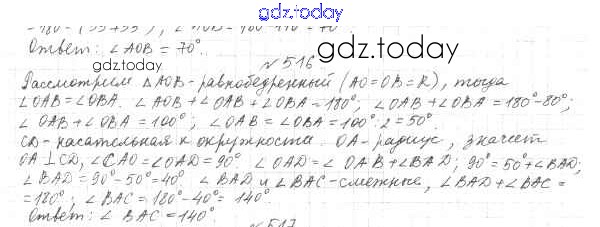 gdz.today
-180-(55+55°), ∠AOB=180-110=70°
Ответ: ∠AOB=70°.
gdz.today
№516
Рассмотрим △AOB-равнобедренный (AO=OB=R), тогда
∠OAB=∠OBA. ∠AOB+∠OAB+∠OBA=180°, ∠OAB+∠OBA=180°-80°;
∠OAB+∠OBA=100°; ∠OAB=∠OBA=100°:2=50°.
CD-касательная к окружности. OA-радиус, значет
OA⊥CD, ∠CAO=∠OAD=90° ∠OAD=∠OAB+∠BAD; 90°=50°+∠BAD;
∠BAD=90°-50°=40° ∠BAD и ∠BAC-смежные, ∠BAD+∠BAC=
=180°; ∠BAC=180°-40°=140°.
Ответ: ∠BAC=140°.
gdz.today
№517